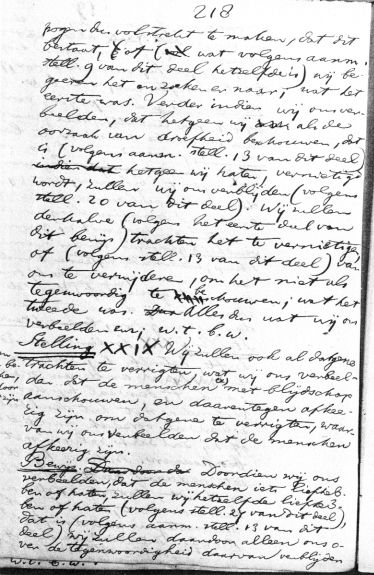 218
pogen dus volstrekt te maken, dat dit
bestaat, of ( wat volgens aanm.
stell. 9 van dit deel hetzelfde is) wij be-
geeren het en zoken er naar, wat het
eerste was. Verder indien wij ons ver-
beelden, dat hetgeen wij als de
oorzaak van droefheid beschouwen, dat
is (volgens aanm. stell. 13 van dit deel)
hetgeen wij haten, vernietigd
wordt, zullen wij ons verblijden (volgens
stell. 20 van dit deel). Wij zullen
derhalve (volgens het eerste deel van
dit bewijs) trachten het te vernietigen,
of (volgens stell. 13 van dit deel) van
ons te verwijderen, om het niet als
tegenwoordig te beschouwen; wat het
tweede was. Alles dus wat wij ons
verbeelden enz. w. t. b. w.
Stelling XXIX Wij zullen ook al datgene
trachten te verrigten, wat wij ons verbeel-
den dat de menschen met blijdschap
aanschouwen, en daarentegen afkee-
rig zijn om datgene te verrigten, waar-
van wij ons verbeelden dat de menschen
afkeerig zijn.
Bewijs Doordien wij ons
verbeelden, dat de menschen iets liefheb-
ben of haten, zullen wij hetzelfde liefheb-
ben of haten (volgens stell. 27 van dit deel),
dat is (volgens aanm. stell. 13 van dit
deel), wij zullen daardoor alleen ons o-
ver de tegenwoordigheid daarvan verblijden
w. t. b. w.